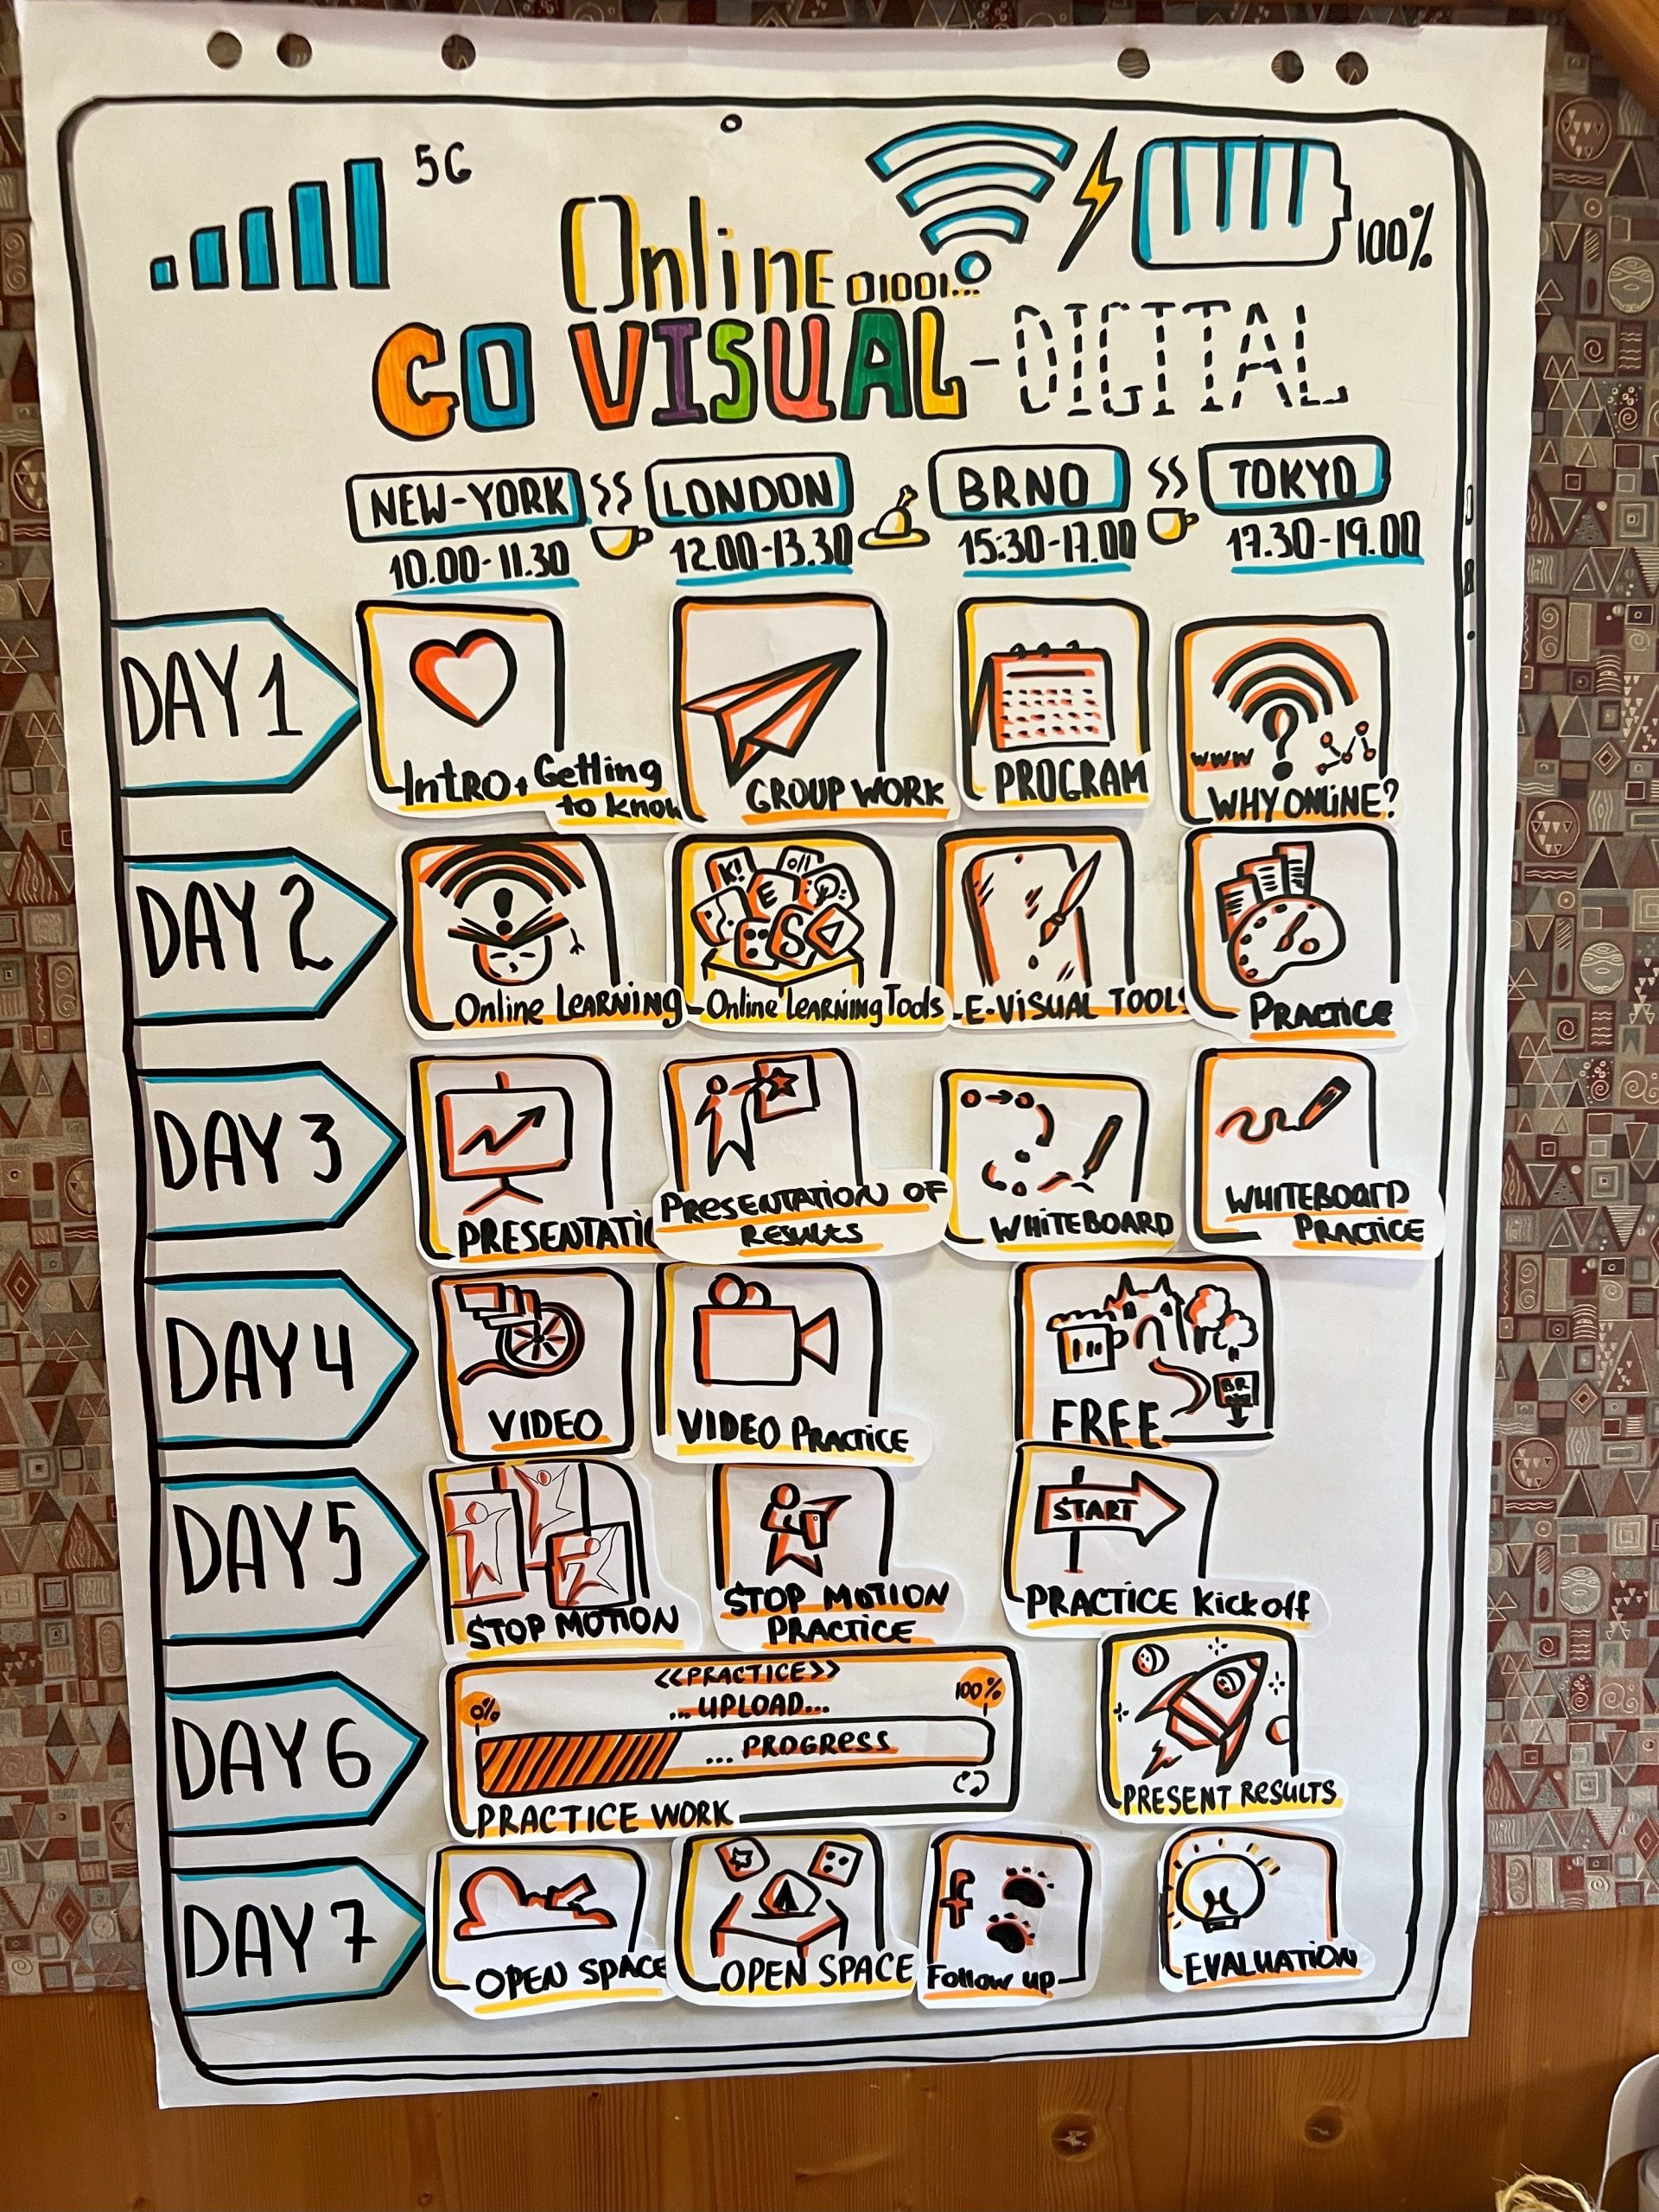 5G
100%
Online 01001...
GO VISUAL-DIGITAL
NEW-YORK LONDON BRNO TOKYO
10.00-11.30 12.00-13.30 15:30-17.00 17.30-19.00
DAY 1
Intro + Getting
to know
GROUP WORK
PROGRAM
www ?
WHY ONLINE?
DAY 2
Online LEARNING
K! 0/1
E
S
Online Learning Tools
E-VISUAL TOOLS
PRACTICE
DAY 3
PRESENTATIO
PRESENTATION OF
RESULTS
WHITEBOARD
WHITEBOARD
PRACTICE
DAY 4
VIDEO
VIDEO PRACTICE
BR
FREE
DAY 5
STOP MOTION
STOP MOTION
PRACTICE
START
PRACTICE Kick off
DAY 6
<<PRACTICE>>
0% ...UPLOAD... 100%
... PROGRESS
PRACTICE WORK
PRESENT RESULTS
DAY 7
OPEN SPACE
OPEN SPACE
f
Follow up
EVALUATION